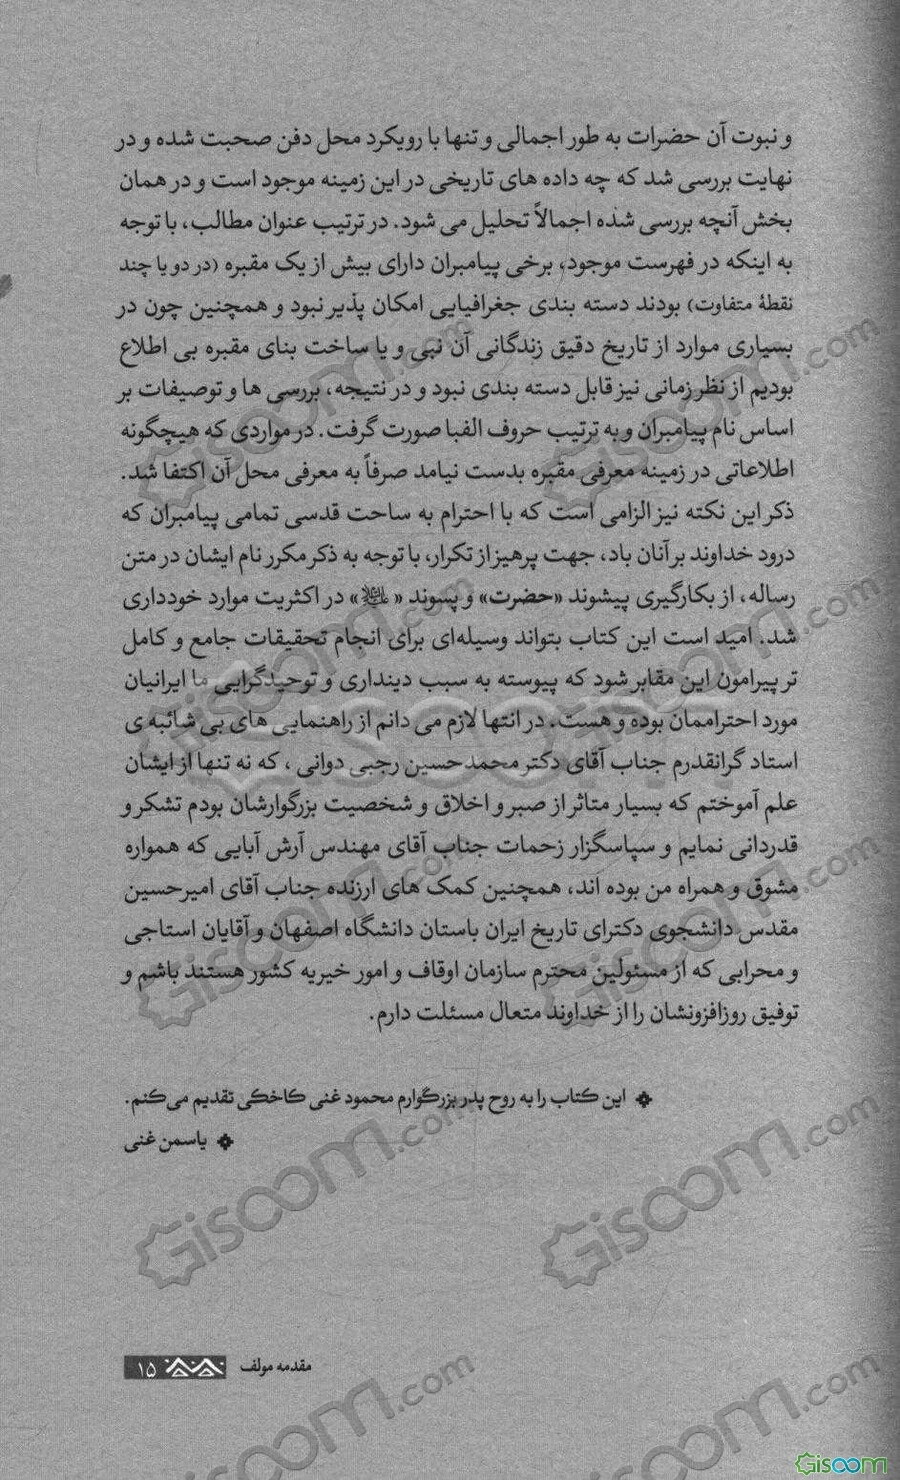 و نبوت آن حضرات به طور اجمالی و تنها با رویکرد محل دفن صحبت شده و در
نهایت بررسی شد که چه داده های تاریخی در این زمینه موجود است و در همان
بخش آنچه بررسی شده اجمالاً تحلیل می شود. در ترتیب عنوان مطالب، با توجه
به اینکه در فهرست موجود، برخی پیامبران دارای بیش از یک مقبره (در دو یا چند
نقطهٔ متفاوت) بودند دسته بندی جغرافیایی امکان پذیر نبود و همچنین چون در
بسیاری موارد از تاریخ دقیق زندگانی آن نبی و یا ساخت بنای مقبره بی اطلاع
بودیم از نظر زمانی نیز قابل دسته بندی نبود و در نتیجه، بررسی ها و توصیفات بر
اساس نام پیامبران و به ترتیب حروف الفبا صورت گرفت. در مواردی که هیچگونه
اطلاعاتی در زمینه معرفی مقبره بدست نیامد صرفاً به معرفی محل آن اکتفا شد.
ذکر این نکته نیز الزامی است که با احترام به ساحت قدسی تمامی پیامبران که
درود خداوند بر آنان باد، جهت پرهیز از تکرار، با توجه به ذکر مکرر نام ایشان در متن
رساله، از بکارگیری پیشوند «حضرت» و پسوند « علیه‌السلام» در اکثریت موارد خودداری
شد. امید است این کتاب بتواند وسیله‌ای برای انجام تحقیقات جامع و کامل
تر پیرامون این مقابر شود که پیوسته به سبب دینداری و توحیدگرایی ما ایرانیان
مورد احتراممان بوده و هست. در انتها لازم می دانم از راهنمایی های بی شائبه ی
استاد گرانقدرم جناب آقای دکتر محمدحسین رجبی دوانی ، که نه تنها از ایشان
علم آموختم که بسیار متاثر از صبر و اخلاق و شخصیت بزرگوارشان بودم تشکر و
قدردانی نمایم و سپاسگزار زحمات جناب آقای مهندس آرش آبایی که همواره
مشوق و همراه من بوده اند، همچنین کمک های ارزنده جناب آقای امیرحسین
مقدس دانشجوی دکترای تاریخ ایران باستان دانشگاه اصفهان و آقایان استاجی
و محرابی که از مسئولین محترم سازمان اوقاف و امور خیریه کشور هستند باشم و
توفیق روزافزونشان را از خداوند متعال مسئلت دارم.
این کتاب را به روح پدر بزرگوارم محمود غنی کاخکی تقدیم می‌کنم.
یاسمن غنی
مقدمه مولف ۱۵
Gisoom.com
Gisoom.com
Gisoom.com
Gisoom.com
Gisoom.com
Gisoom.com
Gisoom.com
Gisoom.com
Gisoom.com
Gisoom.com
Gisoom
Gisoom